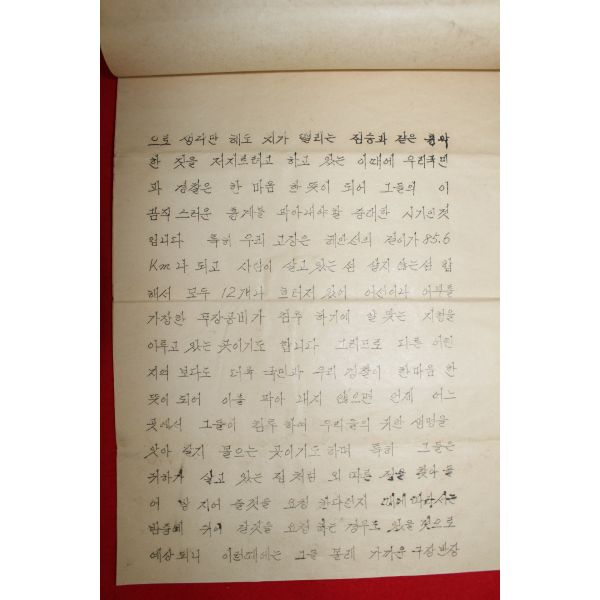 으로 생각만 해도 치가 떨리는 짐승과 같은 흉악
한 짓을 저지르려고 하고 있는 이때에 우리 국민
과 경찰은 한마음 한뜻이 되어 그들의 이
끔직스러운 흉계를 막아내야 할 중대한 시기인 것
입니다 특히 우리 고장은 해안선의 길이가 85.6
Km나 되고 사람이 살고 있는 섬 살지 않는 섬 합
해서 모두 12개나 흐터져 있어 어선이나 어부를
가장한 무장공비가 침투 하기에 알맞는 지형을
이루고 있는 곳이기도 합니다 그러므로 다른 어떤
지역 보다도 더욱 국민과 우리 경찰이 한마음 한
뜻이 되어 이를 막아 내지 않으면 언제 어느
곳에서 그들이 침투 하여 우리들의 귀한 생명을
앗아 갈지 모르는 곳이기도 하며 특히 그들은
귀하가 살고 있는 집처럼 외따른 집을 찾아 들
어 밥 지어 줄것을 요청 한다던지 때에 따라서는
밤중에 쉬어 갈것을 요청 하는 경우도 있을 것으로
예상되니 이런때에는 그들 몰래 가까운 구장 반장